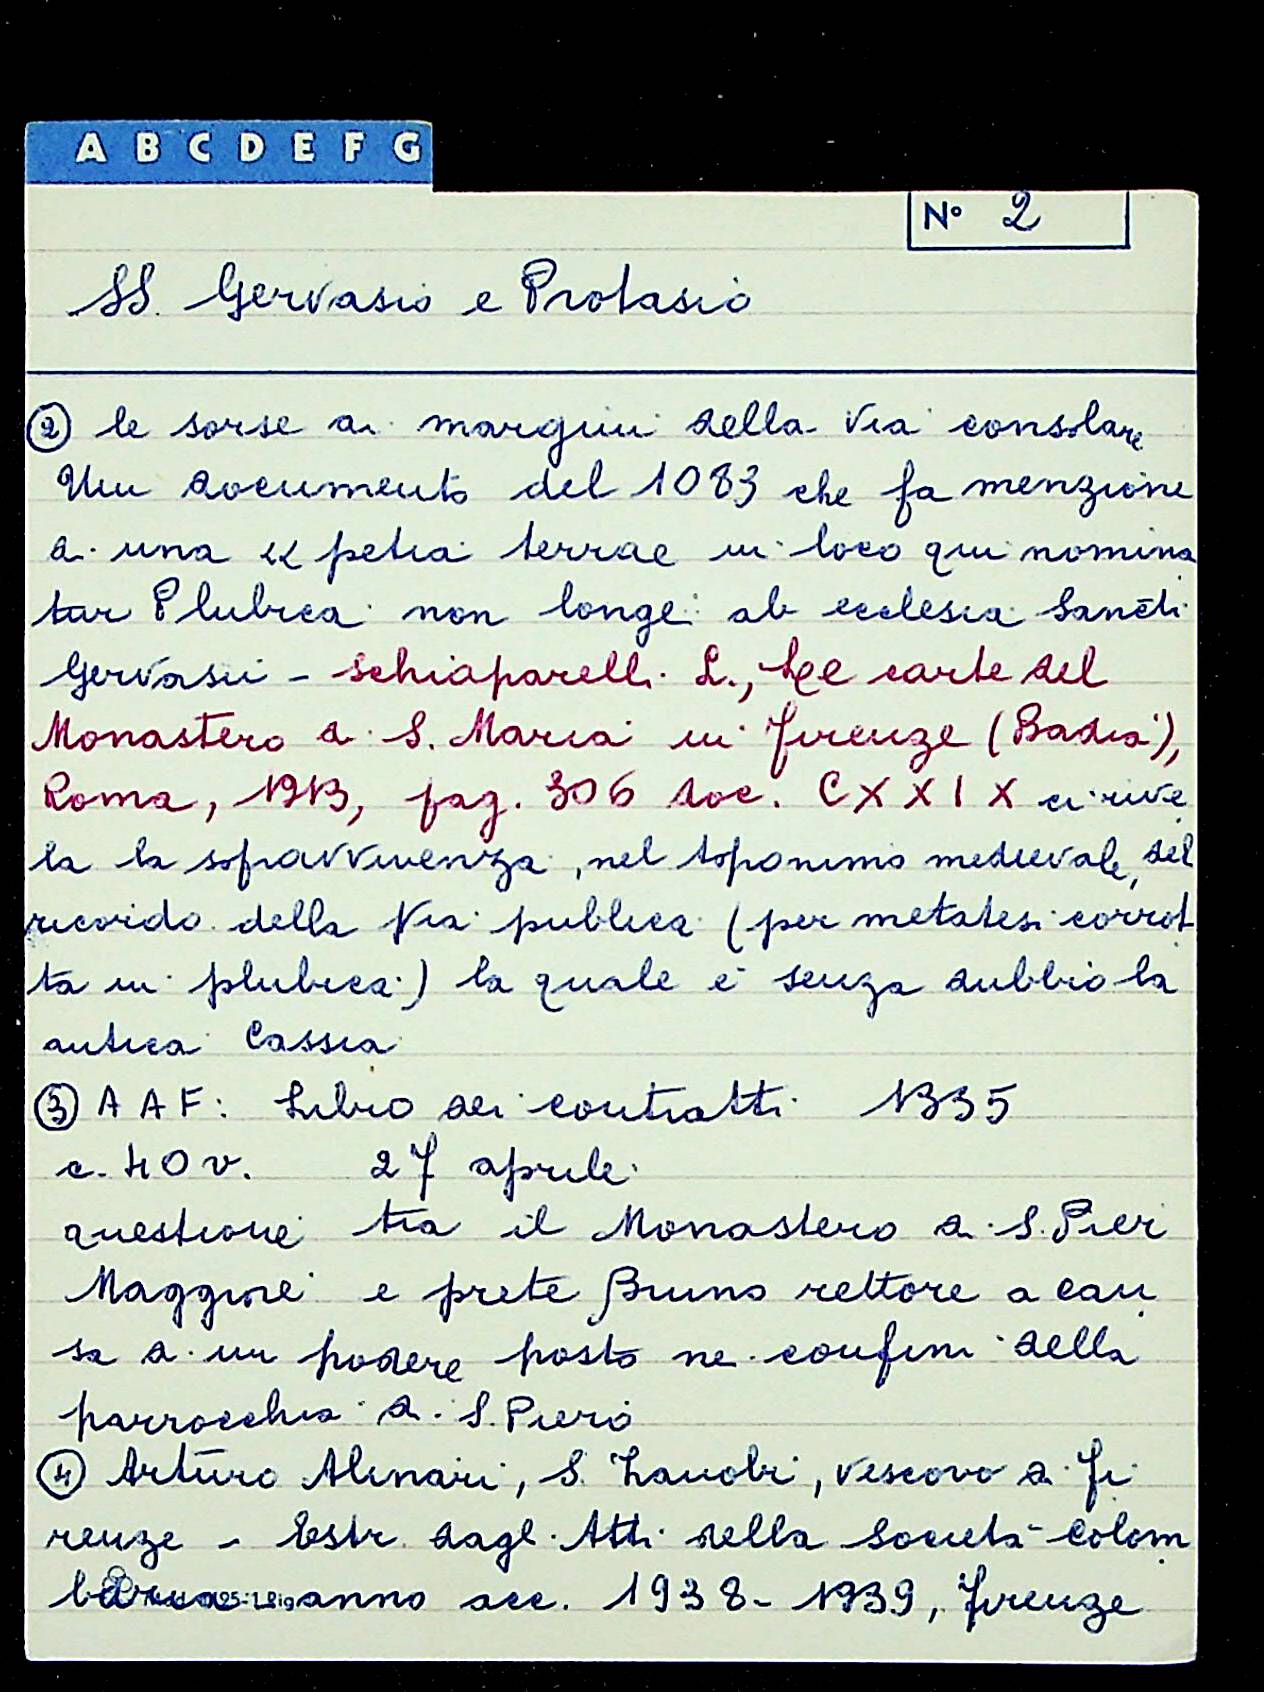 A B C D E F G
N° 2
SS. Gervasio e Protasio
② le sorse ai margini della via consolare
Un documento del 1083 che fa menzione
di una « petia terrae in loco qui nomina
tur Plubica non longe ab ecclesia Sancti
Gervasii - Schiaparelli L., Le carte del
Monastero di S. Maria in Firenze (Badia),
Roma, 1913, pag. 306 doc. CXXIX ci rive
la la sopravvivenza, nel toponimo medievale, del
ricordo della Via publica (per metatesi corrot
ta in plubica) la quale è senza dubbio la
antica Cassia
③ A A F: Libro dei contratti 1335
c. 40 v. 27 aprile
questione tra il Monastero di S. Pier
Maggiore e prete Bruno rettore a cau
sa di un podere posto ne confini della
parrocchia di S. Piero
④ Arturo Alinari, S. Zanobi, vescovo di Fi
renze - Estr. dagli Atti della Società Colom
baria anno acc. 1938-1939, Firenze